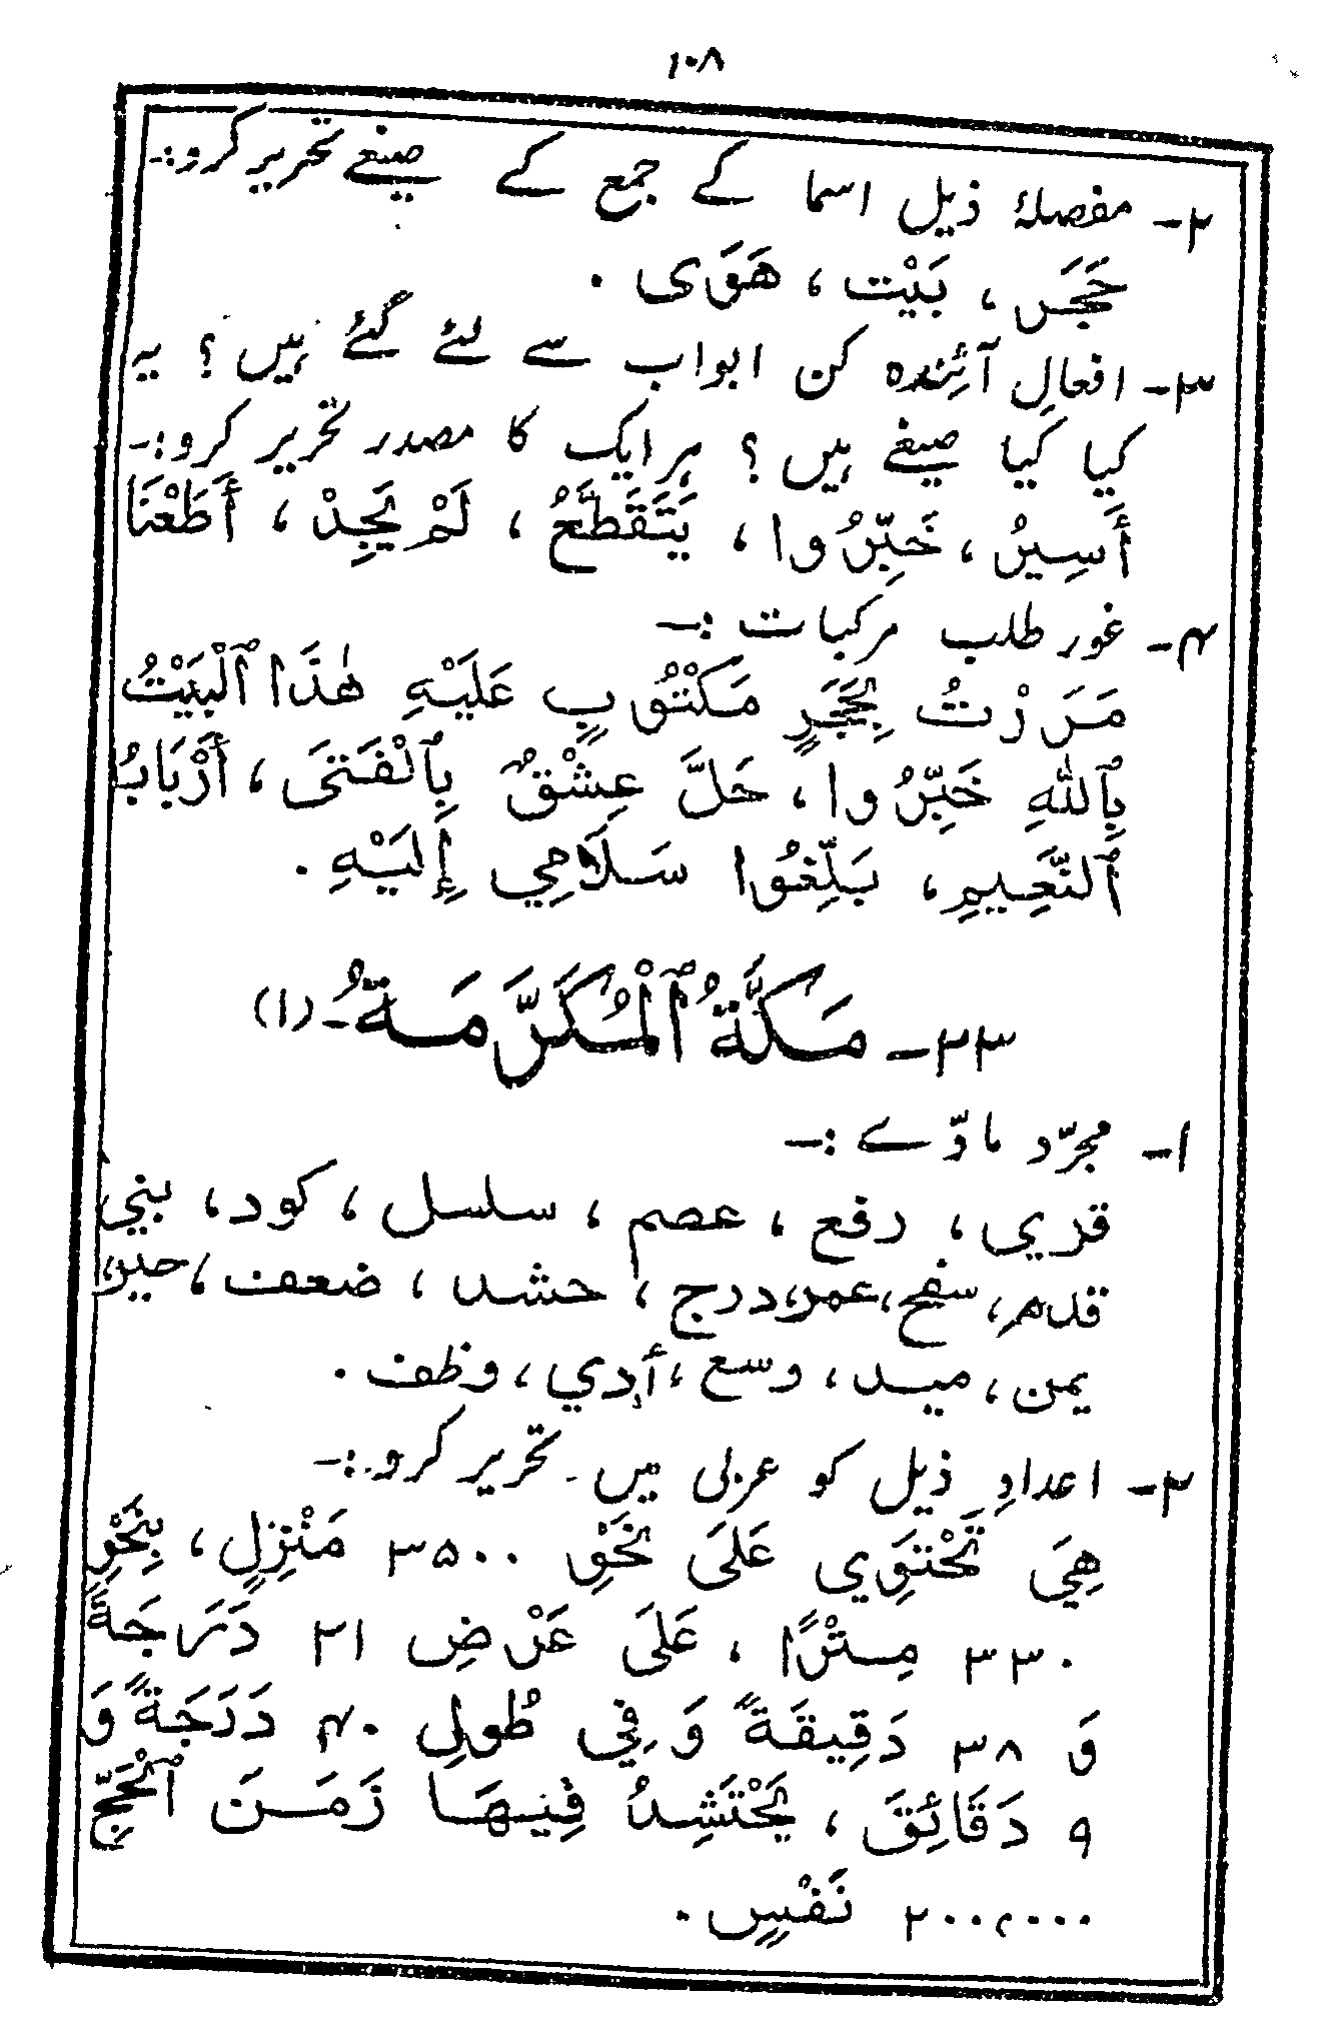 ۱۰۸
۲- مفصلۂ ذیل اسما کے جمع کے صیغے تحریر کرو:-
حَجَر، بَيْت، هَوَى .
۳- افعالِ آئندہ کن ابواب سے لئے گئے ہیں؟ یہ
کیا کیا صیغے ہیں؟ ہر ایک کا مصدر تحریر کرو:-
أَسِيرُ، خَبِّرُوا، يَتَقَطَّعُ، لَمْ يَجِدْ، أَطَعْنَا
۴- غور طلب مرکبات :-
مَرَرْتُ بِحَجَرٍ مَكْتُوبٍ عَلَيْهِ هٰذَا ٱلْبَيْتُ
بِٱللّٰهِ خَبِّرُوا، حَلَّ عِشْقٌ بِٱلْفَتَى، أَرْبَابُ
ٱلنَّعِيمِ، بَلِّغُوا سَلَامِي إِلَيْهِ .
۲۳- مَكَّةُ ٱلْمُكَرَّمَةُ-(۱)
۱- مجرّد مادّے :-
قري، رفع، عصم، سلسل، كود، بني
قدم، سفح، عمر، درج، حشد، ضعف، حير،
يمن، ميد، وسع، أدي، وظف .
۲- اعدادِ ذیل کو عربی میں تحریر کرو:-
هِيَ تَحْتَوِي عَلَى نَحْوِ ۳۵۰۰ مَنْزِلٍ، بِنَحْوِ
۳۳۰ مِتْرًا، عَلَى عَرْضِ ۲۱ دَرَجَةً
وَ ۳۸ دَقِيقَةً وَ فِي طُولِ ۴۰ دَرَجَةً وَ
۹ دَقَائِقَ، يَحْتَشِدُ فِيهَا زَمَنَ ٱلْحَجِّ
۲۰۰،۰۰۰ نَفْسٍ .